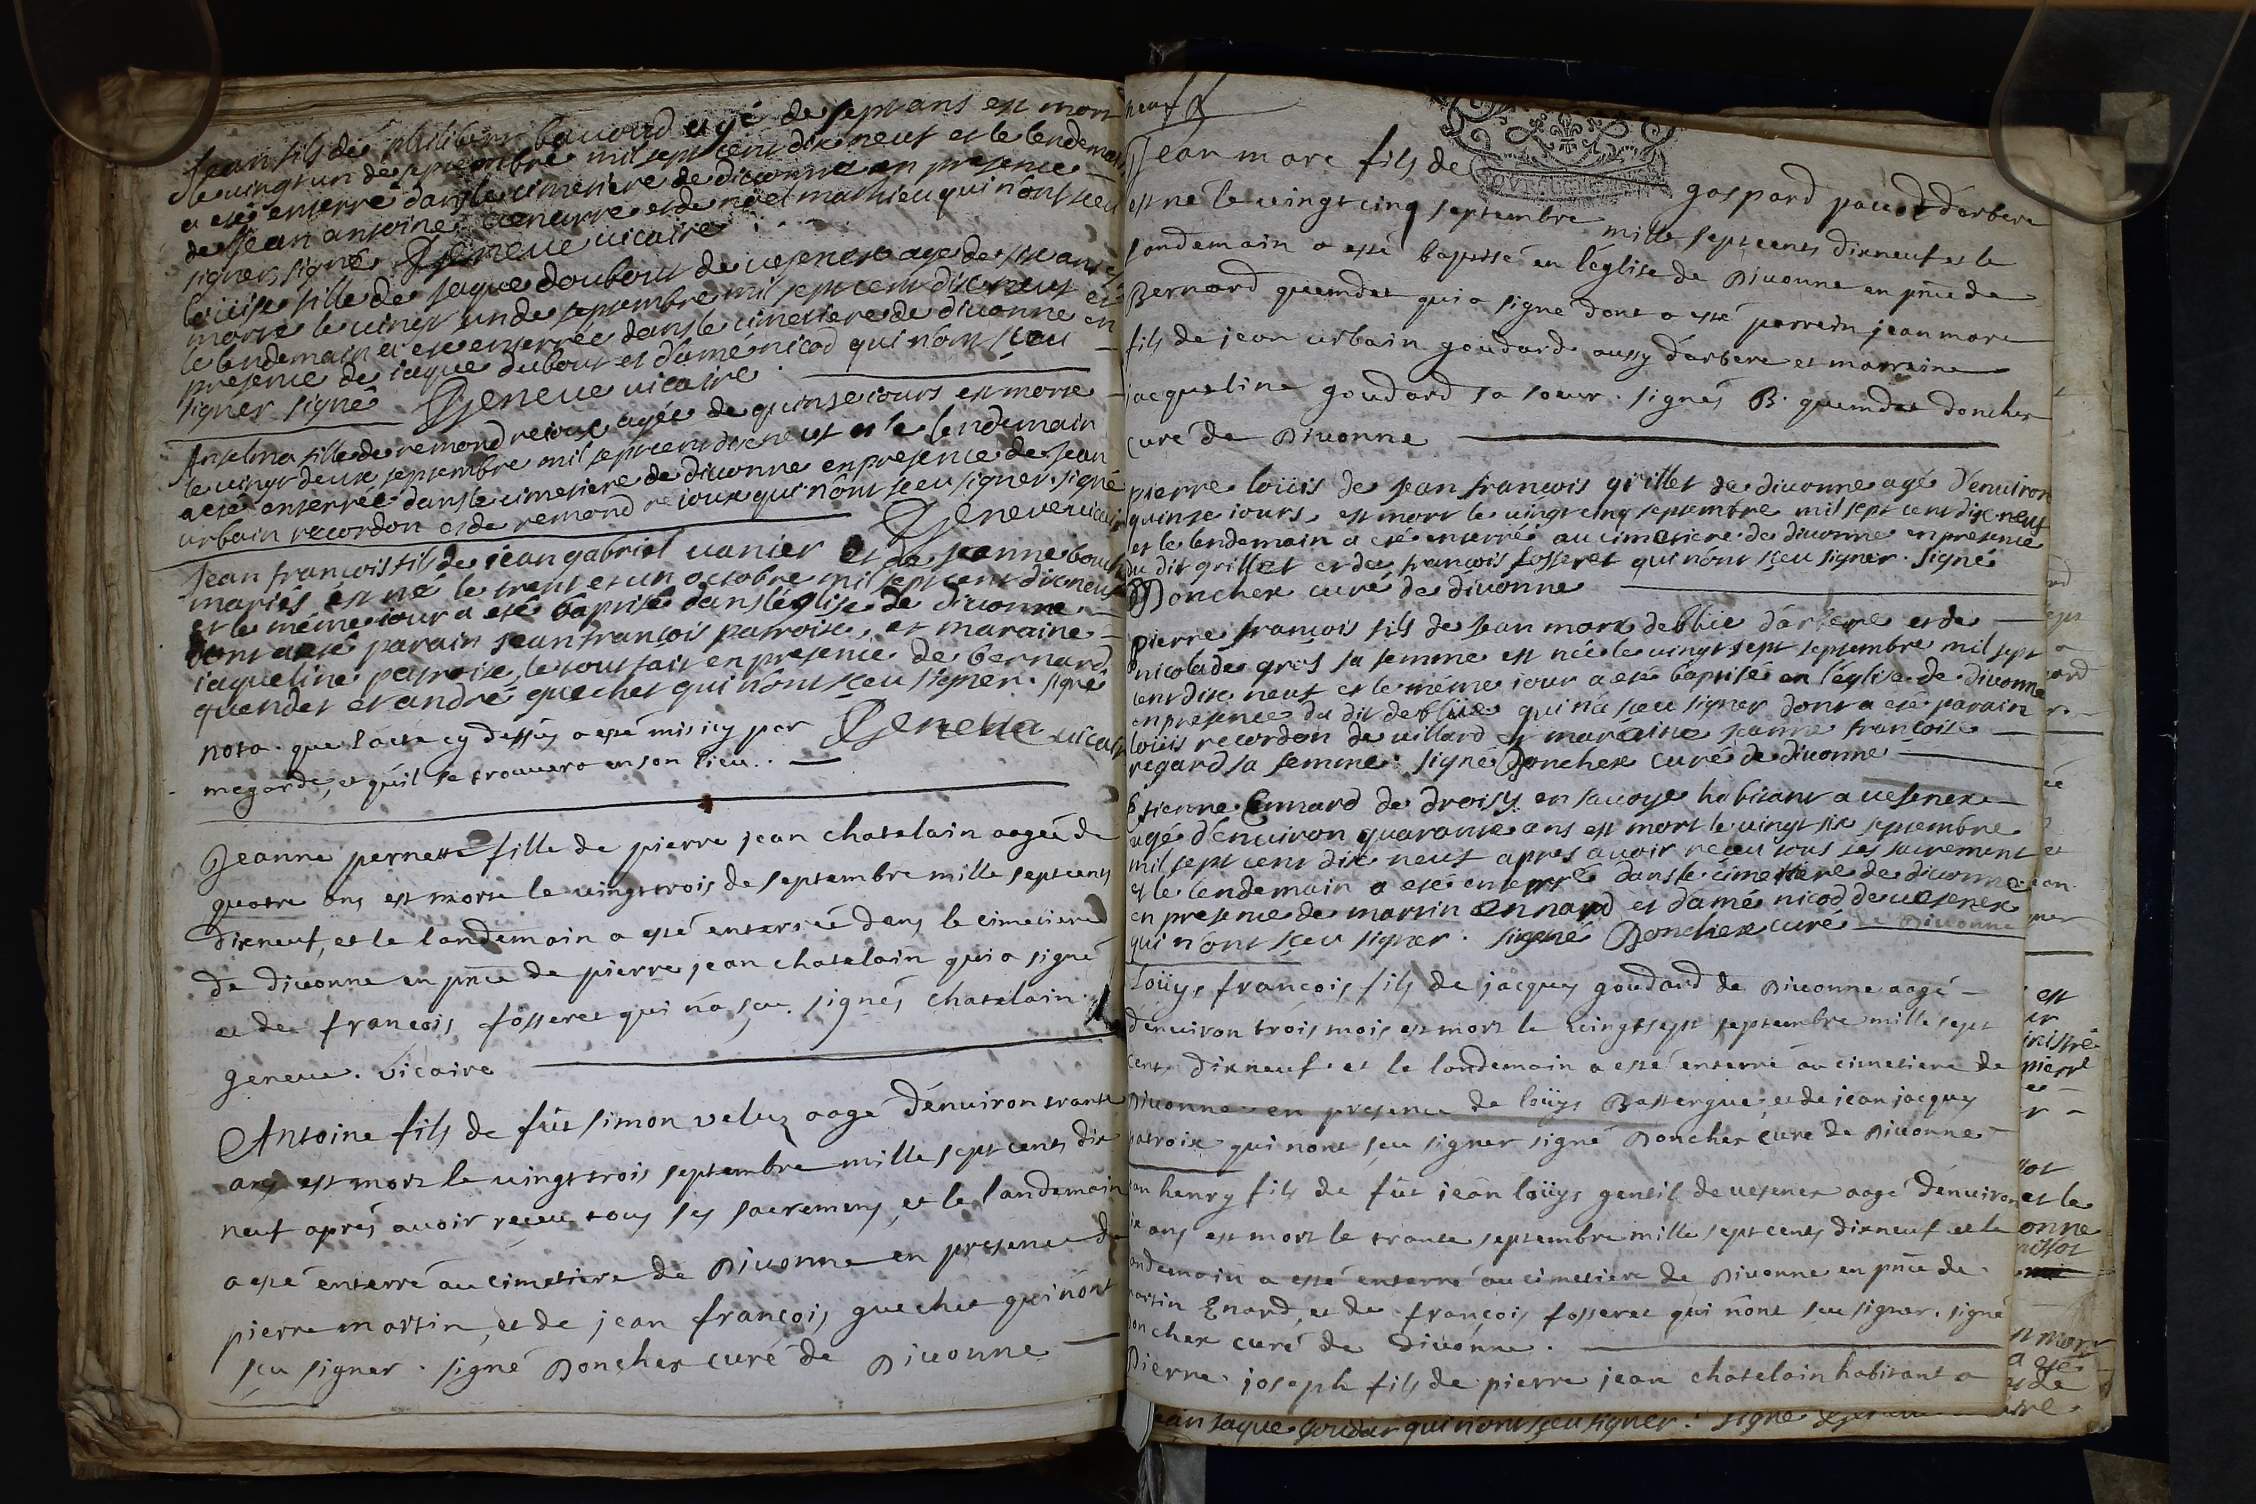 Jean fils de philibert bavoud agé de sept ans est mort
le vingt un de septembre mil sept cent dix neuf et le lendemain
a eté enterré dans le cimetiere de divonne en presence
de Jean antoine et de noel mathieu qui n'ont sceu
signer signé Geneve vicaire
loüise fille de Jaque doubout de vesenex agée de six ans est
morte le vingt un de septembre mil sept cent dix neuf et
le lendemain a eté enterrée dans le cimetiere de divonne en
presence de iaque dubout et d'amé nicod qui n'ont sceu
signer signé Geneve vicaire
Anselma fille de remond reioux agée de quinse iours est morte
le vingt deux septembre mil sept cent dix neuf et le lendemain
a eté enterrée dans le cimetiere de divonne en presence de Jean
urbain recordon et de remond reioux qui n'ont sceu signer. signé
Geneve vicaire
Jean francois fils de iean gabriel vanier et de Jeanne bouch
mariés est né le trent et un octobre mil sept cent dix neuf
et le méme iour a eté baptisé dans l'église de divonne
dont a eté parain Jean françois patroix, et maraine
iaqueline patroix, le tout fait en presence de bernard
quendet et andré quechet qui n'ont sceu signer. signé
Geneva vicaire
nota. que l'acte cy dessus a esté mis icy par
megarde, et qu'il se trouvera en son lieu..
Jeanne pernette fille de pierre jean chatelain aageé de
quatre ans est morte le vingt trois de septembre mille sept cents
dixneuf, et le landemain a esté enterreé dans le cimetiere
de divonne en pñce de pierre jean chatelain qui a signé
et de françois fosseret qui n'a sçu. signés chatelain.
geneve. vicaire
Antoine fils de füt simon veluz aagé d'environ trante
ans est mort le vingt trois septembre mille sept cents dix
neuf aprés avoir reçeu tous ses sacremens, et le landemain
a esté enterré au cimetiere de Divonne en presence de
pierre martin, et de jean françois guechet qui n'ont
sçu signer. signé Doncher curé de Divonne
neuf
Jean marc fils de gaspard pavod d'arbere
est né le vingt cinq septembre mille sept cents dixneuf et le
landemain a esté baptisé en l'église de Divonne en pñce de
Bernard quemdet qui a signé dont a esté parrein jean marc
fils de jean urbain goudard aussy d'arbere et marraine
jacqueline goudard sa soeur. signés B. quemdet doncher
curé de Divonne
pierre loüis de Jean francois grillet de divonne agé d'environ
quinse iours, est mort le vingt cinq septembre mil sept cent dix neuf
et le lendemain a eté enterré au cimetiere de divonne en presence
du dit grillet et de françois fosseret qui n'ont sceu signer. signé
Doncher curé de divonne
pierre françois fils de Jean marc deblüe d'arbere et de
nicolade gros sa femme est née le vingt sept septembre mil sept
cent dix neuf et le méme iour a eté baptisé en l'église de divonne
en presence du dit deblüe qui n'a sceu signer dont a eté parain
loüis recordon de villard et maraine Jeanne françoise
regard sa femme. signé Doncher curé de divonne
Etienne Ennard de droisy en savoye habitant a vesenex
agé d'environ quarante ans est mort le vingt six septembre
mil sept cent dix neuf apres avoir receu tous ses sacrement
et le lendemain a eté enterré dans le cimettiere de divonne
en presence de martin ennard et d'amé nicod de vesenex
qui n'ont sceu signer. signé Doncher curé de Divonne
Loüys françois fils de jacques goudard de Divonne aagé
d'environ trois mois est mort le vingt sept septembre mille sept
cents dixneuf et le landemain a esté enterré au cimetiere de
Divonne en presence de loüys Bastergue, et de jean jacques
patroix qui n'ont sçu signer signé Doncher curé de Divonne
jean henry fils de füt jean loüys gentil de vesenex aagé d'environ
ans est mort le trante septembre mille sept cents dixneuf et le
landemain a esté enterré au cimetiere de Divonne en pñce de
martin Enard, et de françois fosseret qui n'ont sçu signer. signé
Doncher curé de Divonne.
Pierre joseph fils de pierre jean chatelain habitant a
Jean Jaque goudar qui n'ont sceu signer. signé